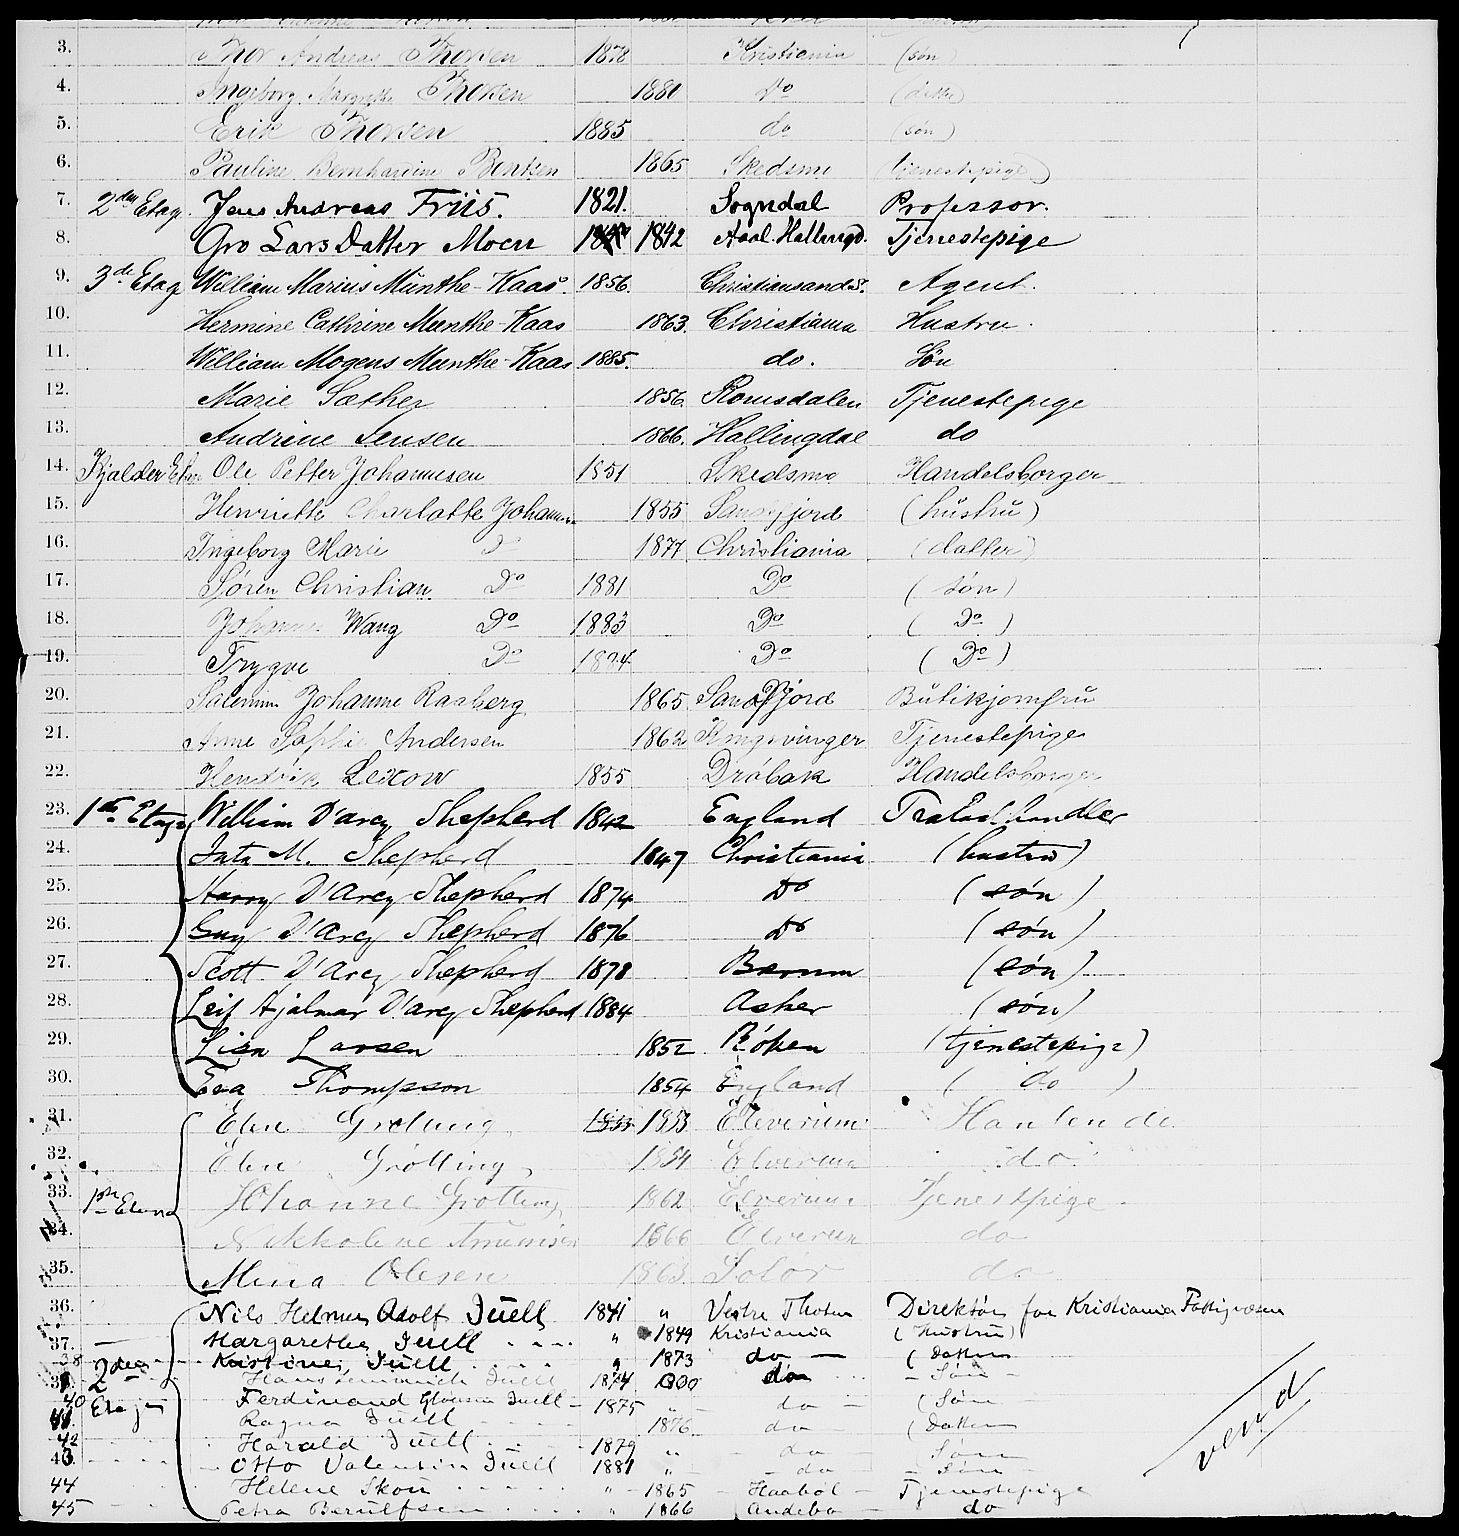 3. Thor Andreas Thorsen 1878 Kristiania (søn
4. Ingborg Margrethe Thorsen 1880 Do (datter)
5. Erik Thorsen 1885 do (søn)
6. Pauline Bernhardine Bentsen 1865 Skedsmo (tjenestepige)
7. 2den Etag. Jens Andreas Friis. 1821. Sogndal Professor.
8. Gro Lars Datter Moen 1842 Aaal. Hallingd. Tjenestepige
9. 3de Etag William Marius Münthe-Kaas. 1856. Christiansand S. Agent.
10. Hermine Cathrine Munthe-Kaas 1863. Christiania Hustru.
11. William Mogens Munthe-Kaas 1885. do. Søn
12. Marie Sæther 1856. Romsdalen Tjenestepige
13. Andrine Jensen 1866. Hallingdal do
14. Kjælder Ole Petter Johannesen 1851 Skedsmo Handelsborger
15. Henriette Charlotte Johannesen 1855 Sandefjord (hustru)
16. Ingeborg Marie Do 1877 Christiania (datter)
17. Søren Christian. Do 1881 Do (søn)
18. Johannes Wang Do 1883 Do (Do)
19. Trygve Do 1884 Do (Do)
20. Johanne Raaberg 1865 Sandefjord Butikjomfru
21. Anne Sophie Andersen 1862 Kongsvinger Tjenestepige
22. Hendrik Lexow 1855 Drøbak Handelsborger
23. 1ste Etage William D'arcy Shepherd 1842 England Trælasthandler
24. Juta M. Shepherd 1847 Christiania (hustru)
25. Harry D'Arcy Shepherd 1874 Do (søn)
26. Guy D'Arcy Shepherd 1876 Do (søn)
27. Scott D'Arcy Shepherd 1878 Bærum (søn)
28. Leif Hjalmar D'arcy Shepherd 1884 Asker (søn)
29. Lisa Larsen 1852 Røken (tjenestepige)
30. Eva Thompson 1854 England (do)
31. Elen Grøtting 1853 Elverum
32. Elen Grøtting 1854 Elverum do
33. Johanne Grøtting 1862 Elverum Tjenestpige
34. Nikkoline 1866 Elverum do
35. Mina Olesen 1863 Solør do
36. Nils Helmer Adolf Juell 1841 " Vestre Thoten Direktør for Kristiania Fattigvæsen
37. Margarethe Juell " 1849 Kristiania (Hustru)
38 2den Kristine Juell " 1873 do (Datter
39. Hans Juell 1874 do Søn
40 Etage Ferdinand Juell 1875 do (Søn
41. Ragna Juell 1876 do (Datter
42 Harald Juell 1879 " do Søn
43. Otto Valentin Juell 1881 " do Søn
44 Helene Skou " 1865 Haabøl Tjenestepige
45 Petra Berulfsen " 1866 Andebo do
vend